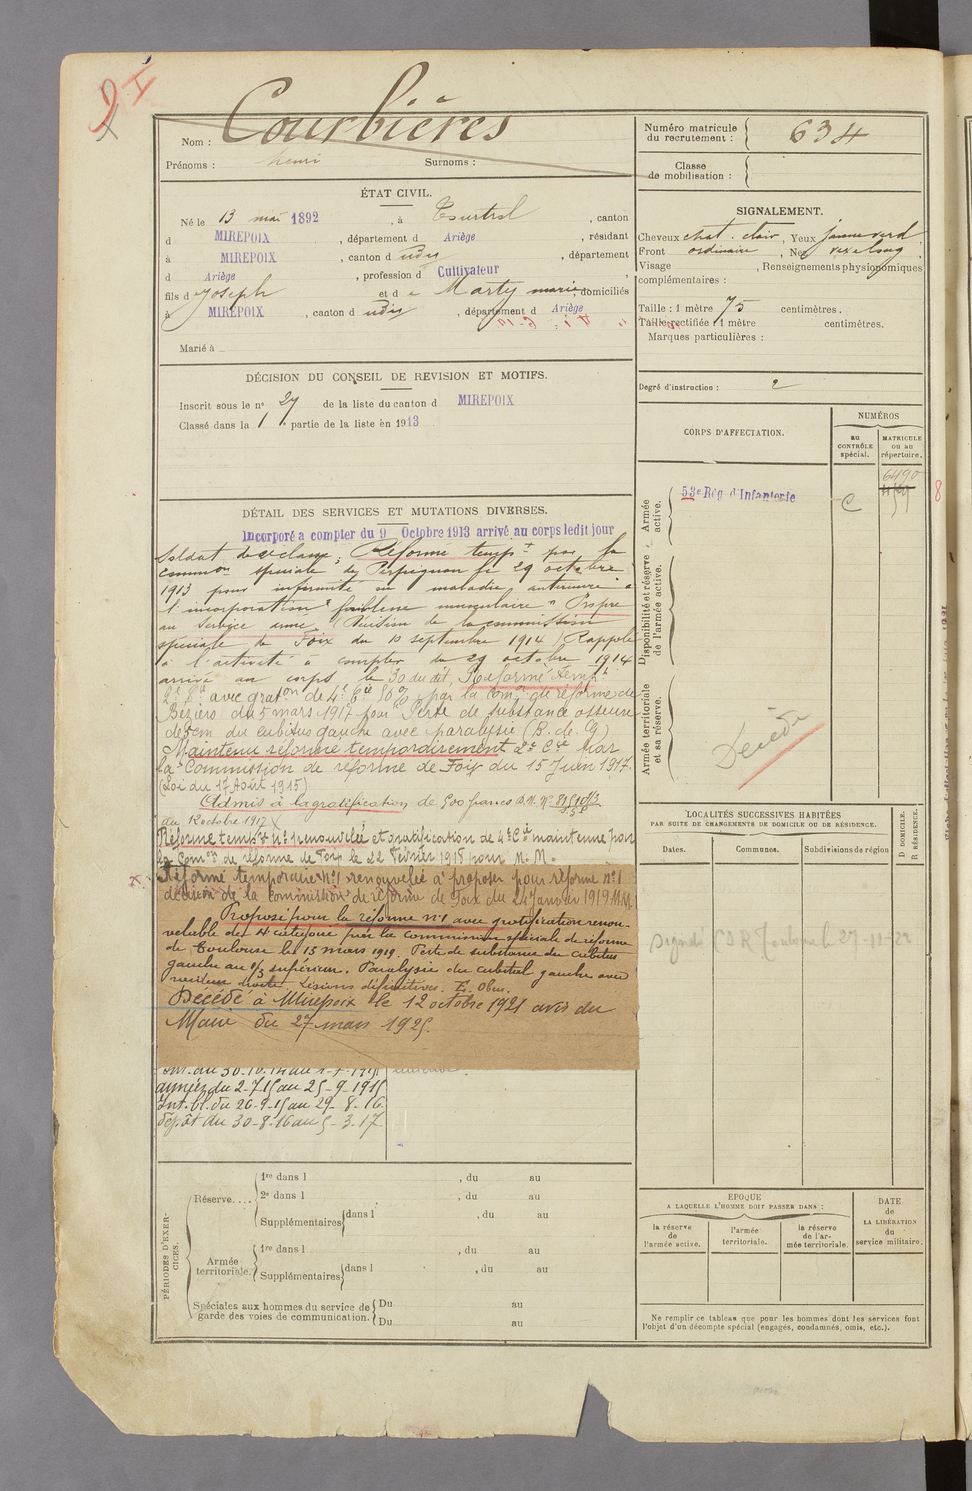 Courbières
Nom :
Prénoms : henri Surnoms :
Numéro matricule du recrutement : 634
Classe de mobilisation :
ÉTAT CIVIL.
Né le 13 mai 1892, à Tourtrol, canton
d MIREPOIX, département d Ariège, résidant
à MIREPOIX, canton d udit, département
d Ariège, profession d Cultivateur
fils d Joseph et d e Marty marie, domiciliés
à MIREPOIX, canton d udit, département d Ariège
Marié à
SIGNALEMENT.
Cheveux chat. clair, Yeux jaune verd
Front ordinaire, Nez
Visage , Renseignements physionomiques
complémentaires :
Taille : 1 mètre 75 centimètres.
Taille rectifiée : 1 mètre centimètres.
Marques particulières :
Degré d'instruction : 2
DÉCISION DU CONSEIL DE REVISION ET MOTIFS.
Inscrit sous le n° 27 de la liste du canton d MIREPOIX
Classé dans la 1 partie de la liste en 1913
CORPS D'AFFECTATION.
NUMÉROS
au CONTRÔLE spécial.
MATRICULE ou au répertoire.
Armée active.
53e Rég. d'Infanterie
C
6490
8
Disponibilité et réserve de l'armée active.
Armée territoriale et sa réserve.
Décédé
DÉTAIL DES SERVICES ET MUTATIONS DIVERSES.
Incorporé a compter du 9 Octobre 1913 arrivé au corps ledit jour
Soldat de 2e classe. Réformé tempt par la
common spéciale de Perpignan le 29 octobre
1913 pour infirmité ou maladie antérieure à
l'incorporation "faiblesse musculaire" Propre
au service armé (Décision de la commission
spéciale de Foix du 10 septembre 1914) Rappelé
à l'activité à compter du 29 octobre 1914
arrivé au corps le 30 du dit, Réformé temp.
2e Cie avec graton de 4e Cie 80% par la Comon de réforme de
Béziers du 5 mars 1917 pour Perte de substance osseuse
de 5cm du cubitus gauche avec paralysie (B. de G)
Maintenu réformé temporairement 2e Cie par
la Commission de réforme de Foix du 15 Juin 1917.
(Loi du 17 Août 1915)
Admis à la gratification de 500 francs D.M. N°
du 12 octobre 1917
Réforme tempre n°1 renouvelée et gratification de 4e Cie maintenue par
la Comon de réforme de Foix le 22 Février 1918 pour M. M.
Réforme temporaire N°1 renouvelée à proposer pour réforme n°1
décision de la commission de réforme de Foix du 24 Janvier 1919 M.M.
Proposé pour la réforme n°1 avec gratification renou-
velable de 4e catégorie par la Commission spéciale de réforme
de Toulouse le 15 mars 1919. Perte de substance du cubitus
gauche au 1/3 supérieur. Paralysie du cubital gauche avec
Lésions définitives. E. Obus.
Décédé à Mirepoix le 12 octobre 1921 avis du
Maire du 27 mars 1925.
Int. du 30-10-14 au 1-7-1915
armées du 2-7-15 au 25-9-1915
Int. bl. du 26-9-15 au 29-8-16
dépôt du 30-8-16 au 5-3-17
LOCALITÉS SUCCESSIVES HABITÉES
PAR SUITE DE CHANGEMENTS DE DOMICILE OU DE RÉSIDENCE.
Dates. Communes. Subdivisions de région
D DOMICILE. R RÉSIDENCE.
CDR Toulouse le 27-11-22
PÉRIODES D'EXERCICES.
Réserve....
1re dans l , du au
2e dans l , du au
Supplémentaires dans l , du au
Armée territoriale.
1re dans l , du au
Supplémentaires dans l , du au
Spéciales aux hommes du service de garde des voies de communication.
Du au
Du au
EPOQUE
A LAQUELLE L'HOMME DOIT PASSER DANS :
la réserve de l'armée active.
l'armée territoriale.
la réserve de l'armée territoriale.
DATE de LA LIBÉRATION du service militaire.
Ne remplir ce tableau que pour les hommes dont les services font
l'objet d'un décompte spécial (engagés, condamnés, omis, etc.).